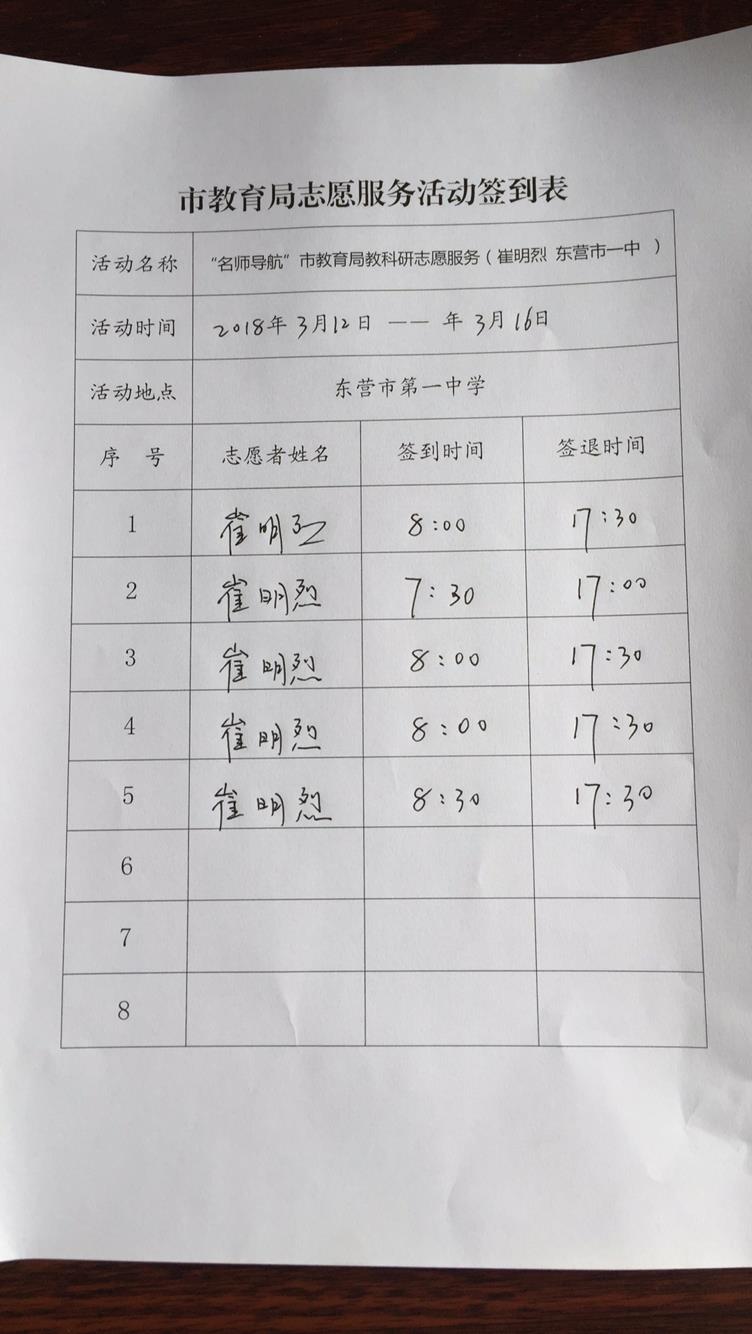 市教育局志愿服务活动签到表
活动名称 “名师导航”市教育局教科研志愿服务（崔明烈 东营市一中 ）
活动时间 2018年 3月12日 —— 年 3月16日
活动地点 东营市第一中学
序 号 志愿者姓名 签到时间 签退时间
1 崔明烈 8:00 17:30
2 崔明烈 7:30 17:00
3 崔明烈 8:00 17:30
4 崔明烈 8:00 17:30
5 崔明烈 8:30 17:30
6
7
8